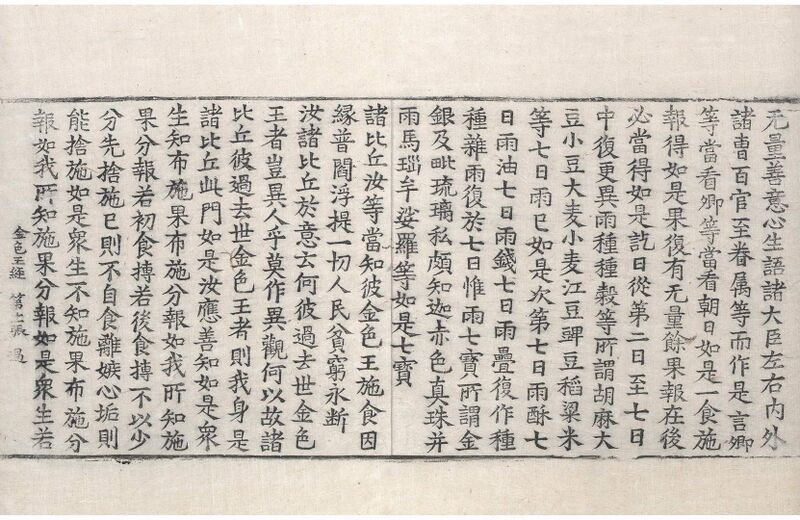 无量善意心生語諸大臣左右内外
諸曹百官至眷属等而作是言卿
等當看卿等當看朝日如是一食施
報得如是果復有无量餘果報在後
必當得如是訖日從第二日至七日
中復更異雨種種穀等所謂胡麻大
豆小豆大麦小麦江豆豍豆稻粱米
等七日雨巳如是次第七日雨酥七
日雨油七日雨錢七日雨疊復作種
種雜雨復於七日惟雨七寶所謂金
銀及毗琉璃私頗知迦赤色真珠并
雨馬瑙牟娑羅等如是七寶
諸比丘汝等當知彼金色王施食因
縁普閻浮提一切人民貧窮永断
汝諸比丘於意云何彼過去世金色
王者豈異人乎莫作異觀何以故諸
比丘彼過去世金色王者則我身是
諸比丘此門如是汝應善知如是衆
生知布施果布施分報如我所知施
果分報若初食摶若後食摶不以少
分先捨施巳則不自食離嫉心垢則
能捨施如是衆生不知施果布施分
報如我所知施果分報如是衆生若
金色王經 第七張 過